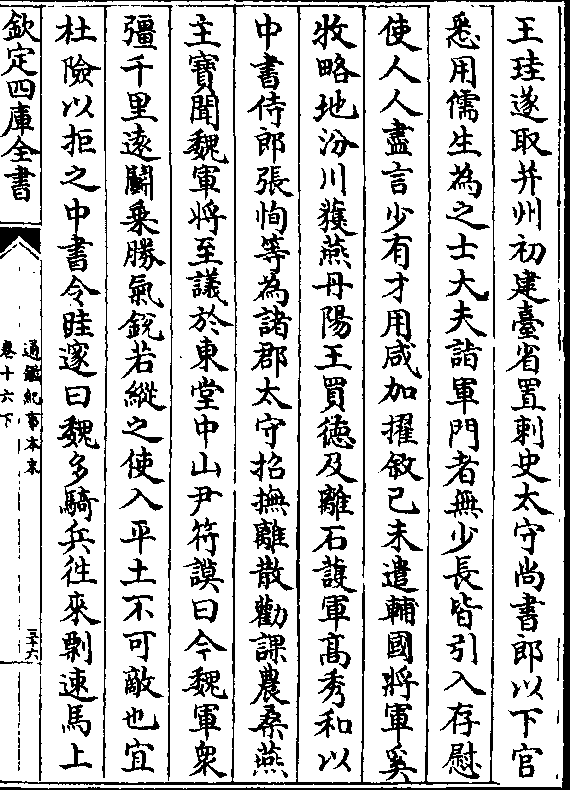 王珪遂取并州初建臺省置刺史太守尚書郎以下官
悉用儒生為之士大夫詣軍門者無少長皆引入存慰
使人人盡言少有才用咸加擢敘己未遣輔國將軍奚
牧略地汾川獲燕丹陽王買徳及離石護軍髙秀和以
中書侍郎張恂等為諸郡太守招撫離散勸課農桑燕
主寳聞魏軍將至議於東堂中山尹符謨曰今魏軍衆
彊千里逺鬭乗勝氣銳若縱之使入平土不可敵也宜
杜險以拒之中書令眭邃曰魏多騎兵徃來剽速馬上
欽定四庫全書
通鑑紀事本末
卷十六下
三十六